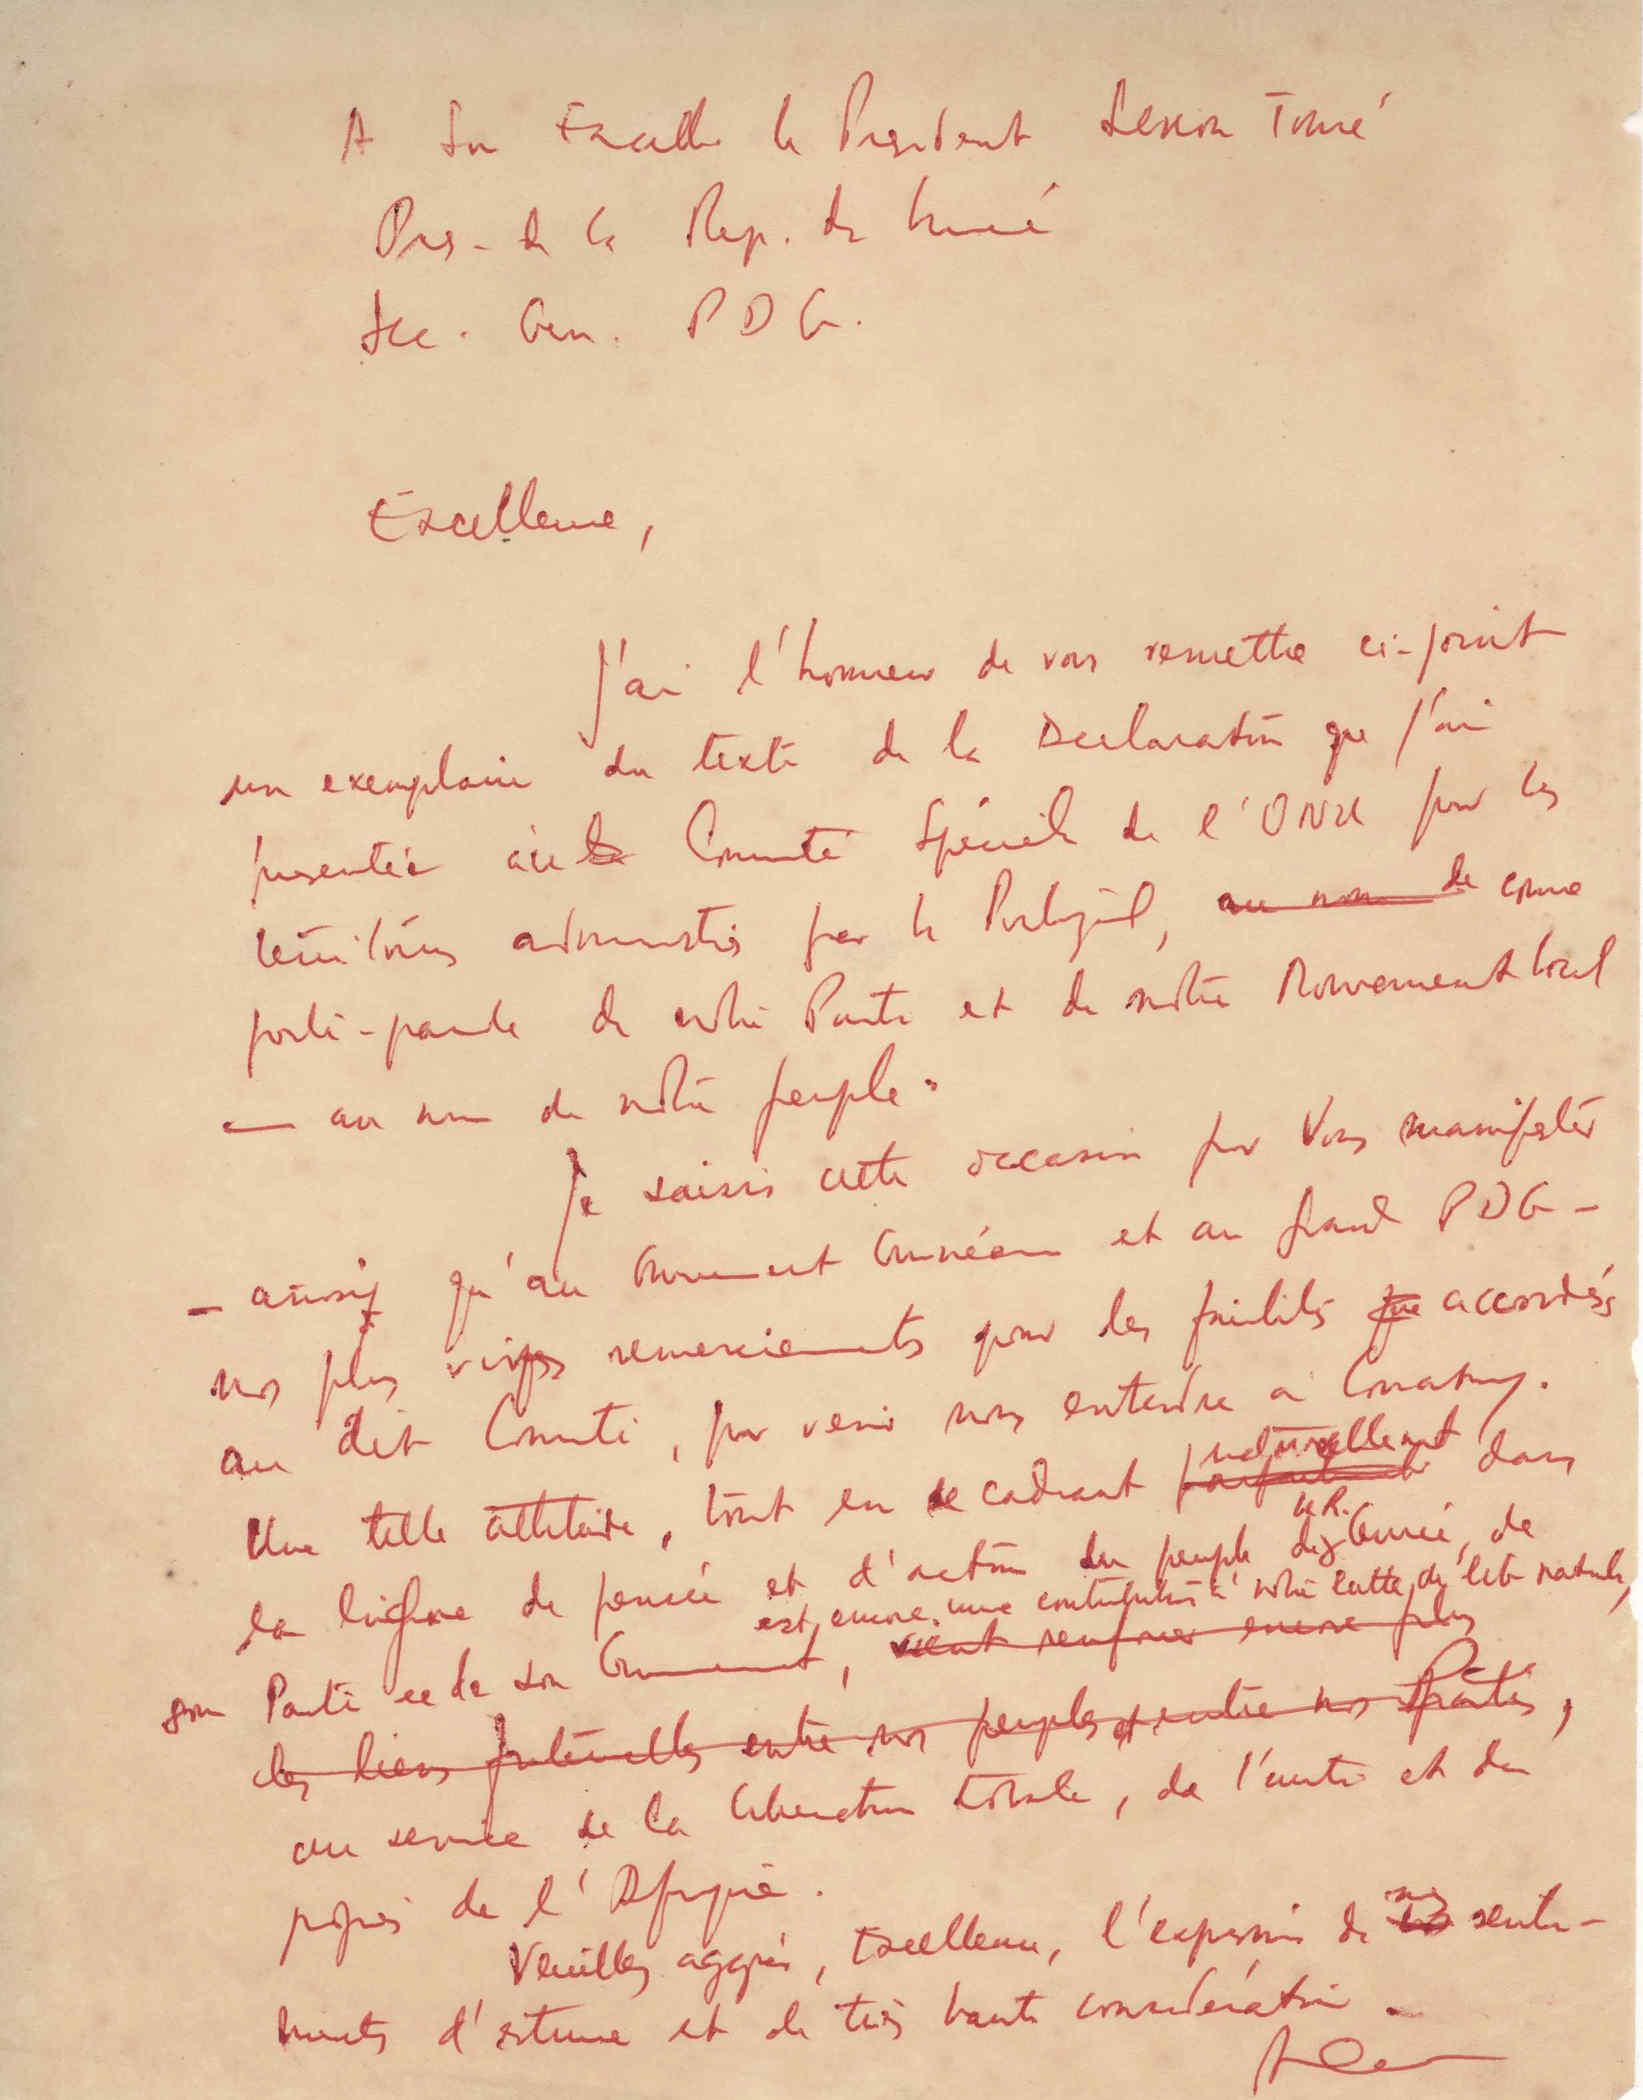 A Son Excelle le President Sekou Touré
Pres. de la Rep. de Guinée
Sec. Gen. PDG.
Excellence,
J'ai l'honneur de vous remettre ci-joint
un exemplaire du texte de la Declaration que j'ai
presentée au Comité Spécial de l'ONU pour les
territoires administrés par le Portugal, au nom de comme
porte-parole de notre Parti et de notre Mouvement
— au nom de notre peuple.
Je saisis cette occasion pour Vous manifester
— ainsi qu'au Gouvernement Guinéen et au grand PDG —
nos plus vives remerciements pour les facilités que accordées
au dit Comité, pour venir nous entendre à Conakry.
naturellement
Une telle attitude, tout en se cadrant parfaitement dans
la R.
la ligne de pensée et d'action du peuple de Guinée, de
est, encore, une contribution à notre lutte de lib. nationale,
son Parti et de son Gouvernement, vient renforcer encore plus
les liens fraternelles entre nos peuples et entre nos Partis,
au service de la liberation totale, de l'unité et du
progrès de l'Afrique.
mes
Veuillez aggréer, Excellence, l'expression de senti-
ments d'estime et de très haute consideration.